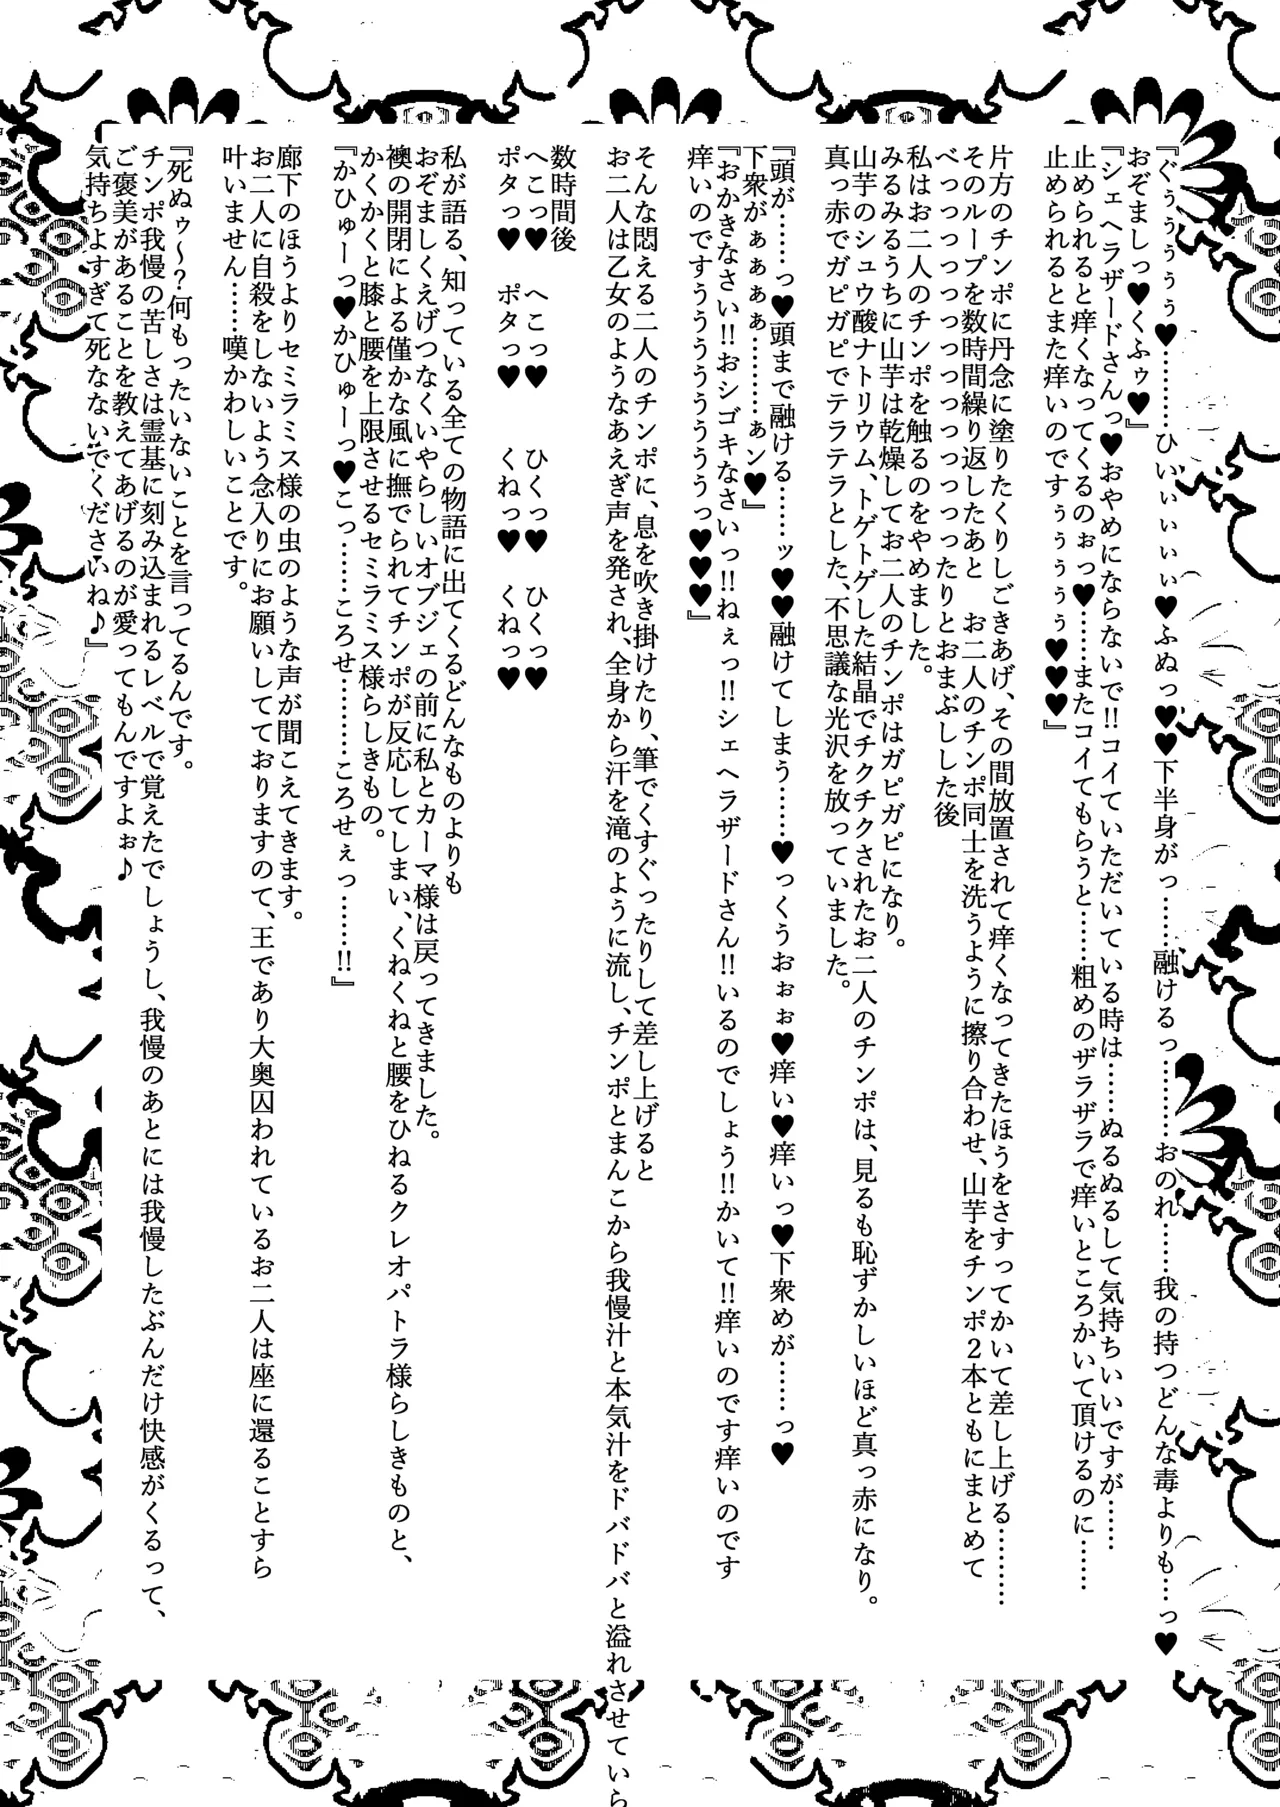 『ぐぅぅぅぅぅ♥………ひいぃぃぃぃ♥ふぬっ♥♥下半身がっ……融けるっ………おのれ……我の持つどんな毒よりも…っ♥
おぞましっ♥くふゥ♥』
『シェヘラザードさんっ♥おやめにならないで!!コイていただいている時は……ぬるぬるして気持ちいいですが……
止められると痒くなってくるのぉっ♥……またコイてもらうと……粗めのザラザラで痒いところかいて頂けるのに……
止められるとまた痒いのですぅぅぅぅぅ♥♥♥』
片方のチンポに丹念に塗りたくりしごきあげ、その間放置されて痒くなってきたほうをさすってかいて差し上げる………
そのループを数時間繰り返したあと　お二人のチンポ同士を洗うように擦り合わせ、山芋をチンポ２本ともにまとめて
べっっっっっっっっっっっっっったりとおまぶしした後
私はお二人のチンポを触るのをやめました。
みるみるうちに山芋は乾燥してお二人のチンポはガピガピになり。
山芋のシュウ酸ナトリウム、トゲトゲした結晶でチクチクされたお二人のチンポは、見るも恥ずかしいほど真っ赤になり。
真っ赤でガピガピでテラテラとした、不思議な光沢を放っていました。
『頭が……っ♥頭まで融ける……ッ♥♥融けてしまう……♥っくうおぉぉ♥痒い♥痒いっ♥下衆めが……っ♥
下衆がぁぁぁぁ………ぁン♥』
『おかきなさい!!おシゴキなさいっ!!ねぇっ!!シェヘラザードさん!!いるのでしょう!!かいて!!痒いのです痒いのです
痒いのですうううううううっ♥♥♥』
そんな悶える二人のチンポに、息を吹き掛けたり、筆でくすぐったりして差し上げると
お二人は乙女のようなあえぎ声を発され、全身から汗を滝のように流し、チンポとまんこから我慢汁と本気汁をドバドバと溢れさせていら
数時間後
へこっ♥　へこっ♥　　ひくっ♥　ひくっ♥
ポタっ♥　ポタっ♥　　くねっ♥　くねっ♥
私が語る、知っている全ての物語に出てくるどんなものよりも
おぞましくえげつなくいやらしいオブジェの前に私とカーマ様は戻ってきました。
襖の開閉による僅かな風に撫でられてチンポが反応してしまい、くねくねと腰をひねるクレオパトラ様らしきものと、
かくかくと膝と腰を上限させるセミラミス様らしきもの。
『かひゅーっ♥かひゅーっ♥こっ……ころせ………ころせぇっ……!!』
廊下のほうよりセミラミス様の虫のような声が聞こえてきます。
お二人に自殺をしないよう念入りにお願いしてておりますのて、王であり大奥囚われているお二人は座に還ることすら
叶いません……嘆かわしいことです。
『死ぬゥ〜？何もったいないことを言ってるんです。
チンポ我慢の苦しさは霊基に刻み込まれるレベルで覚えたでしょうし、我慢のあとには我慢したぶんだけ快感がくるって、
ご褒美があることを教えてあげるのが愛ってもんですよぉ♪
気持ちよすぎて死なないでくださいね♪』